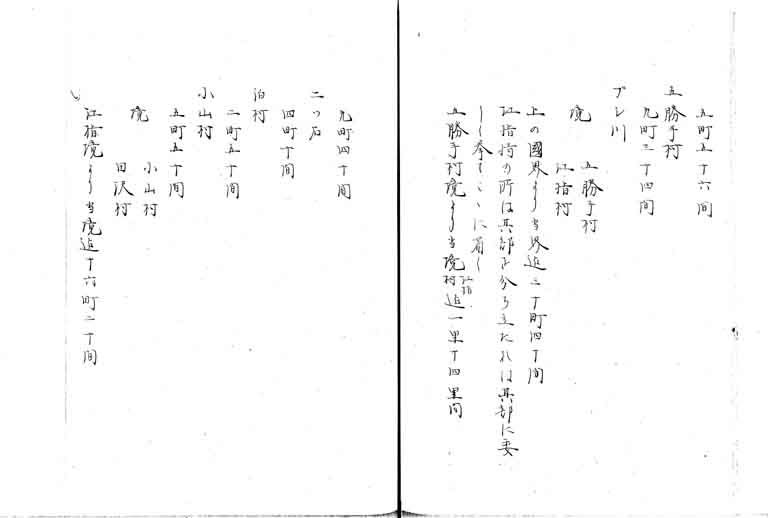 五町五十六間
五勝手村
九町三十四間
ブシ川
境 五勝手村
江指村
上の國界より当界迄二十町四十間
江指持の所は其部を分ち立たれは其部に委
しく挙てこゝに省く
五勝手村境より当境江指村迄一里十四里間
九町四十間
二つ石
四町十間
泊村
二町五十間
小山村
五町五十間
境 小山村
田沢村
江指境より当境迄十六町二十間